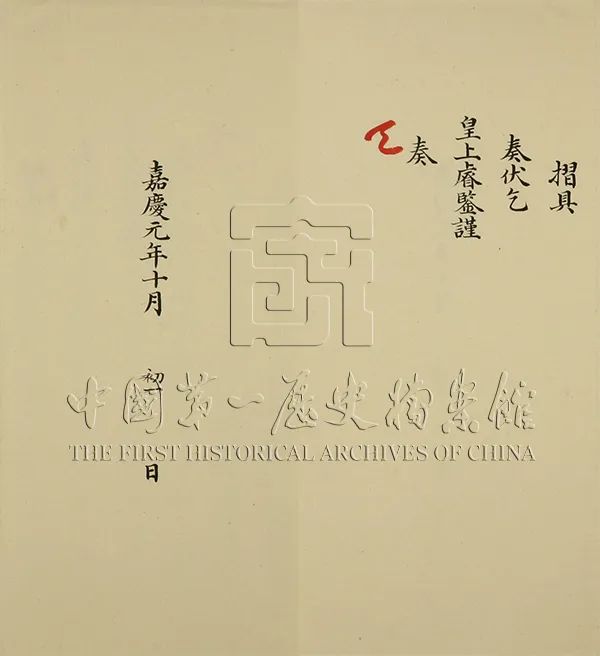 摺具
奏伏乞
皇上睿鑒謹
奏
嘉慶元年十月 初 日
中國第一歷史檔案館
THE FIRST HISTORICAL ARCHIVES OF CHINA